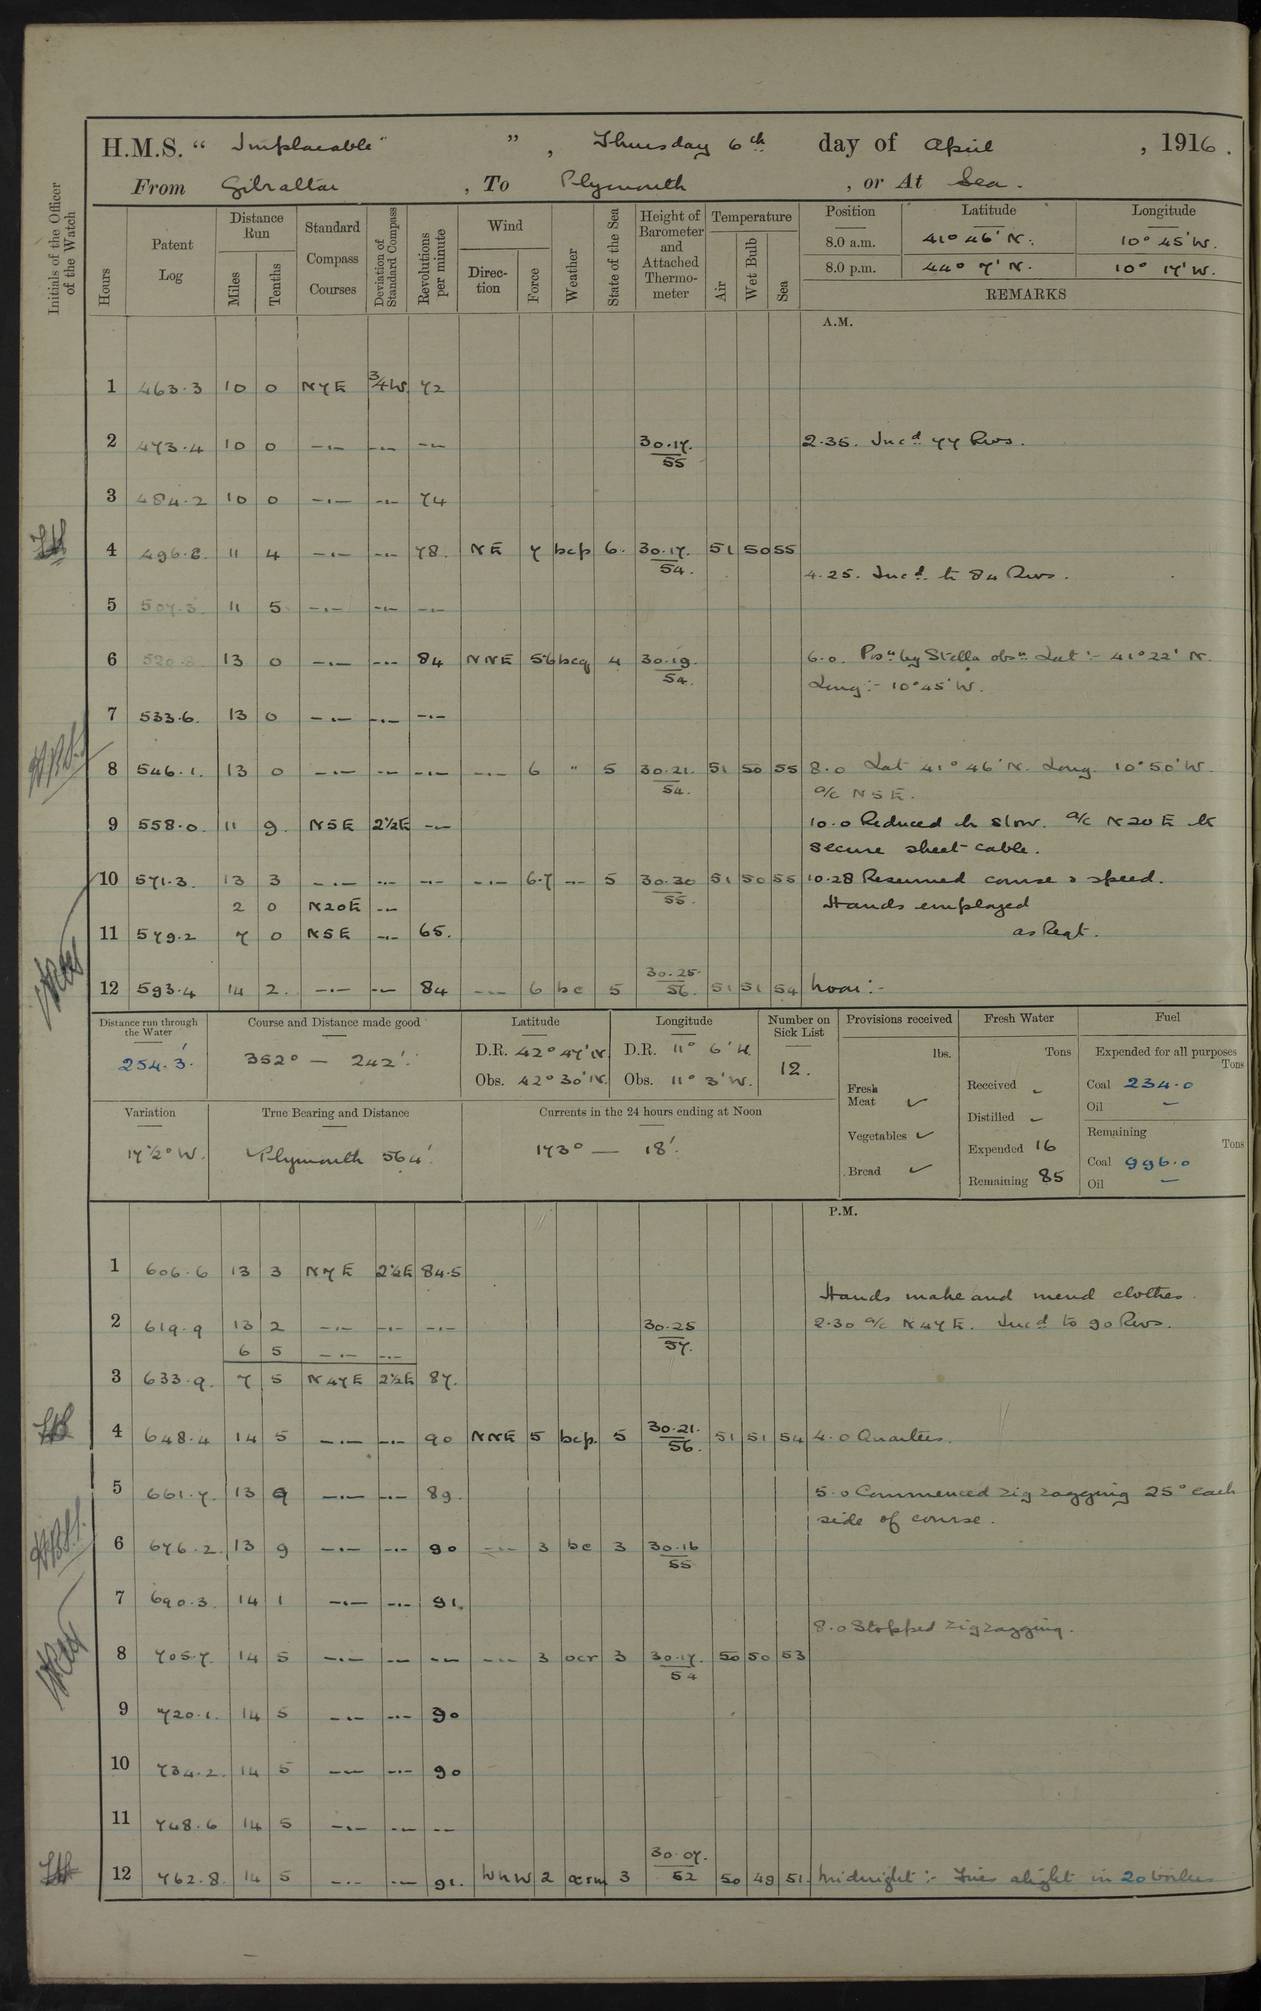 H.M.S. “ Implacable” ” , Thursday 6th day of April , 1916.
From Gibraltar , To Plymouth , or At Sea.
Initials of the Officer of the Watch
Hours
Patent Log
Distance Run
Miles
Tenths
Standard Compass Courses
Deviation of Standard Compass
Revolutions per minute
Wind
Direc-tion
Force
Weather
State of the Sea
Height of Barometer and Attached Thermo-meter
Temperature
Air
Wet Bulb
Sea
Position Latitude Longitude
8.0 a.m. 41° 46' N. 10° 45' W.
8.0 p.m. 44° 7' N. 10° 17' W.
REMARKS
A.M.
1 463.3 10 0 N7E 3/4W. 72
2 473.4 10 0 —·— —·— —·— 30.17. 55 2.35. Incd. 77 Revs.
3 484.2 10 0 —·— —·— 74
4 496.8. 11 4 —·— —·— 78. NE 7 bcp 6. 30.17. 54. 51 50 55
4.25. Incd. to 84 Revs.
5 507.3. 11 5 —·— —·— —·—
6 520.8 13 0 —·— —·— 84 NNE 5·6 bcq 4 30.19. 54. 6.0. Posn by Stella obsn Lat :- 41°22' N.
Long :- 10°45' W.
7 533.6. 13 0 —·— —·— —·—
8 546.1. 13 0 —·— —·— —·— —·— 6 " 5 30.21. 54. 51 50 55 8.0 Lat 41° 46' N. Long. 10° 50' W.
a/c N5E.
9 558.0. 11 9. N5E 2½E —·— 10.0 Reduced to slow. a/c N20E to
secure sheet cable.
10 571.3. 13 3 —·— —·— —·— —·— 6·7 —·— 5 30.30 55. 51 50 55 10.28 Resumed course & speed.
2 0 N20E —·— Hands employed
11 579.2 7 0 N5E —·— 65. as Reqt.
12 593.4 14 2. —·— —·— 84 —·— 6 bc 5 30.25. 56. 51 51 54 Noon :-
Distance run through the Water
254.3'.
Course and Distance made good
352° — 242'.
Latitude
D.R. 42° 47' N.
Obs. 42° 30' N.
Longitude
D.R. 11° 6' W.
Obs. 11° 3' W.
Number on Sick List
12.
Provisions received
lbs.
Fresh Meat ✓
Vegetables ✓
Bread ✓
Fresh Water
Tons
Received -
Distilled -
Expended 16
Remaining 85
Fuel
Expended for all purposes
Tons
Coal 234.0
Oil —
Remaining
Tons
Coal 996.0
Oil —
Variation
17½° W.
True Bearing and Distance
Plymouth 564'.
Currents in the 24 hours ending at Noon
173° — 18'.
P.M.
1 606.6 13 3 N7E 2½E 84.5
Hands make and mend clothes.
2 619.9 13 2 —·— —·— —·— 30.25 57. 2.30 a/c N47E. Incd to 90 Revs.
6 5 —·— —·—
3 633.9. 7 5 N47E 2½E 87.
4 648.4 14 5 —·— —·— 90 NNE 5 bcp. 5 30.21. 56. 51 51 54 4.0 Quarters.
5 661.7. 13 9 —·— —·— 89. 5.0 Commenced zig zagging 25° each
side of course.
6 676.2. 13 9 —·— —·— 90 —·— 3 bc 3 30.16 55
7 690.3. 14 1 —·— —·— 91.
8.0 Stopped zigzagging.
8 705.7. 14 5 —·— —·— —·— —·— 3 ocr 3 30.17. 54 50 50 53
9 720.1. 14 5 —·— —·— 90
10 734.2. 14 5 —·— —·— 90
11 748.6 14 5 —·— —·— —·—
12 762.8. 14 5 —·— —·— 91. WNW 2 3 30.07. 52 50 49 51. Midnight :- Fires alight in 20 boilers